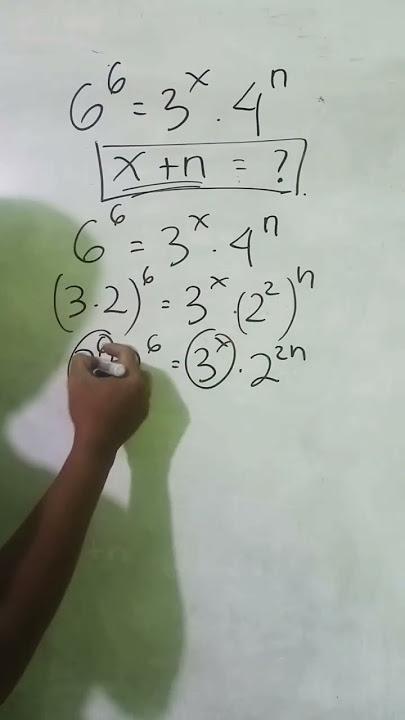 6⁶ = 3ˣ . 4ⁿ
x + n = ?
6⁶ = 3ˣ . 4ⁿ
(3 . 2)⁶ = 3ˣ . (2²)ⁿ
⁶ = 3ˣ . 2²ⁿ